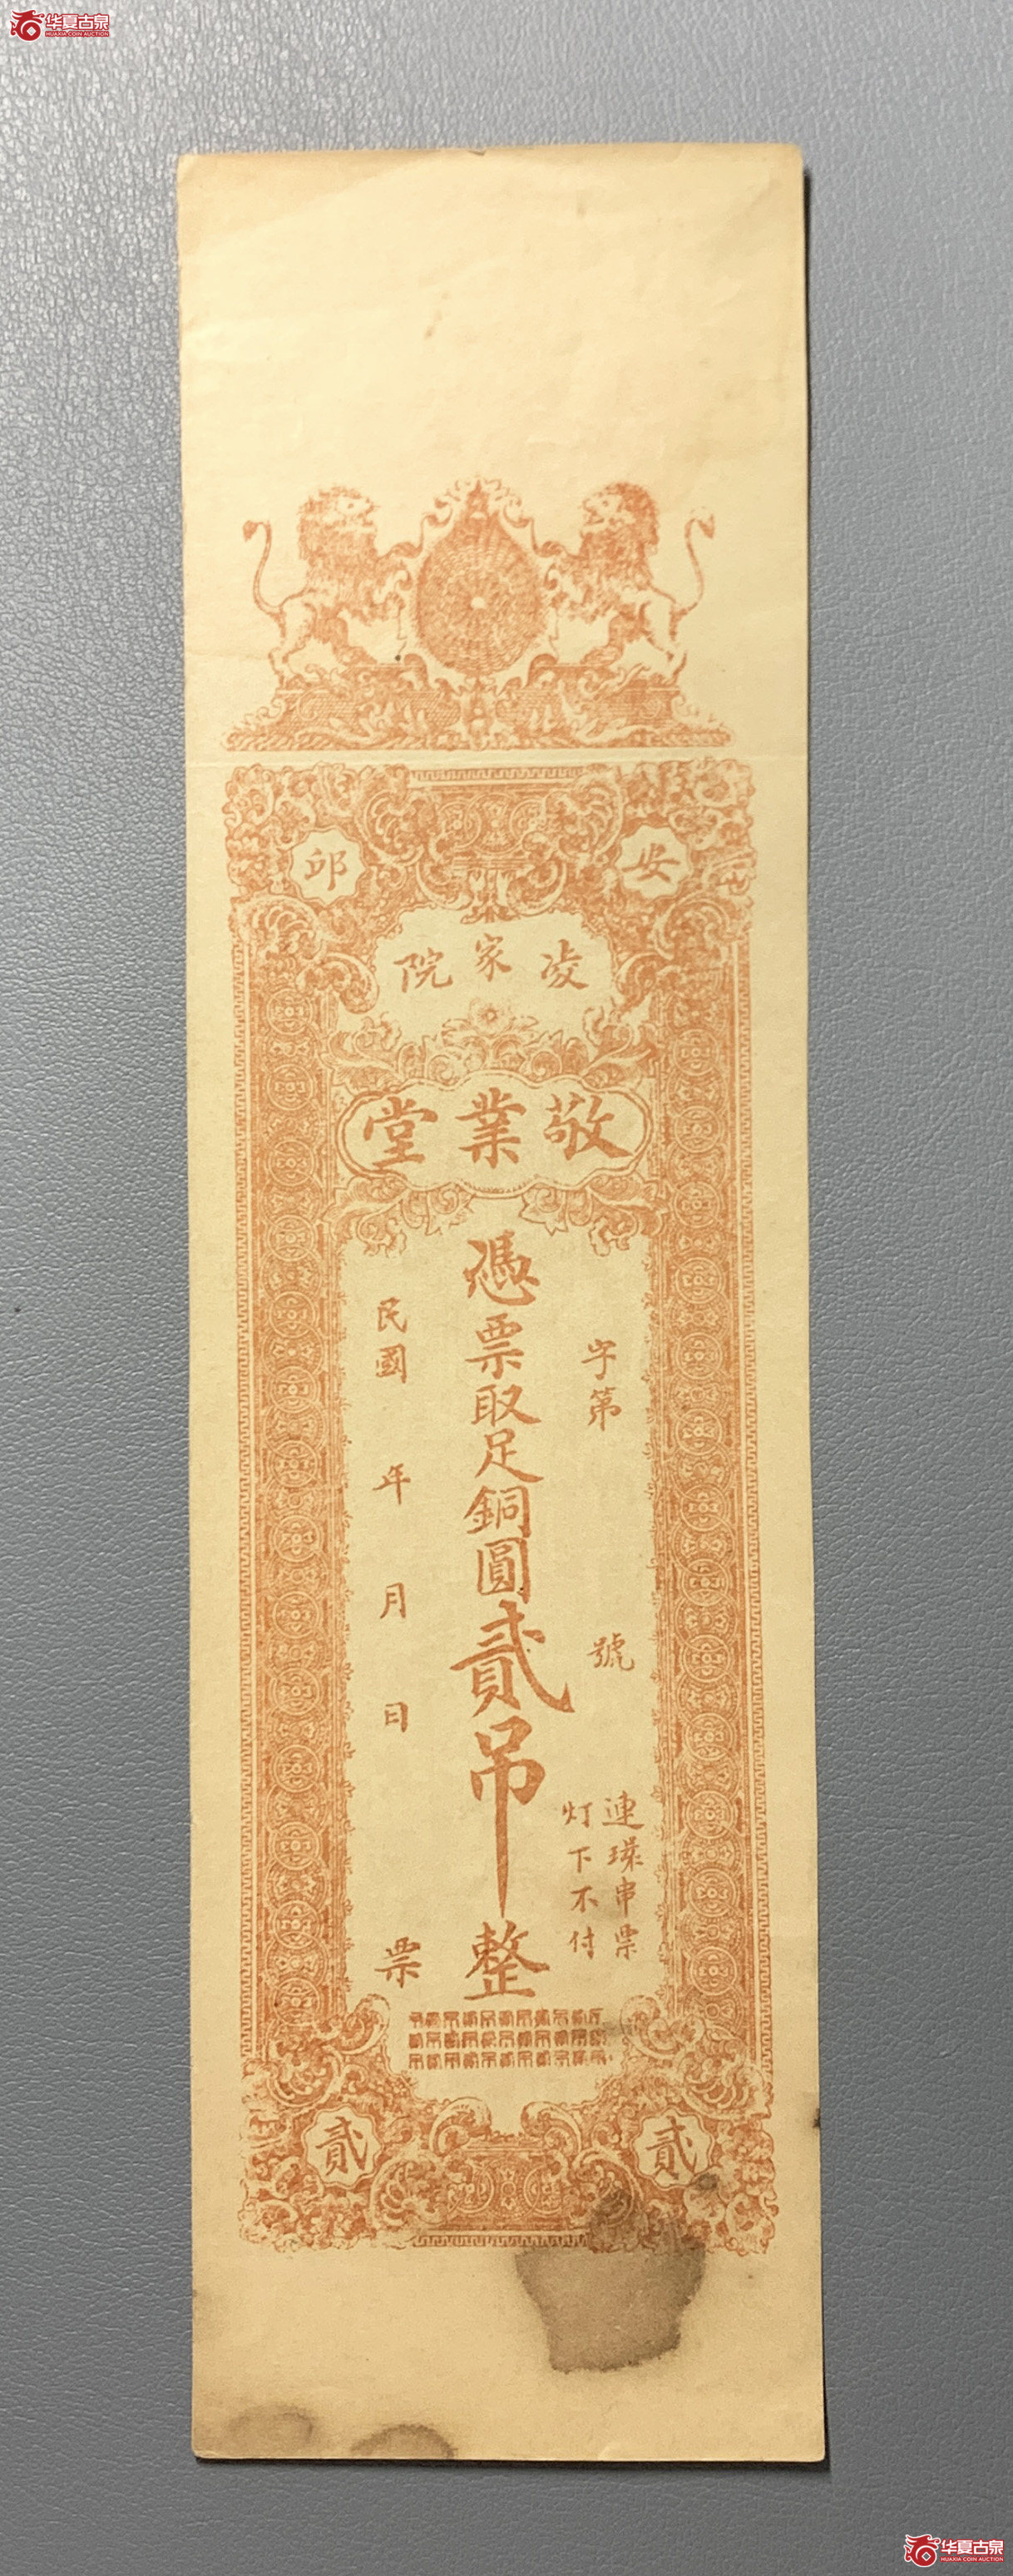 华夏古泉
HUAXIA COIN AUCTION
安邱
凌家院
敬業堂
字第 號
連環串票
灯下不付
憑票取足銅圓貳吊整
民國 年 月 日 票
貳
貳
华夏古泉
HUAXIA COIN AUCTION